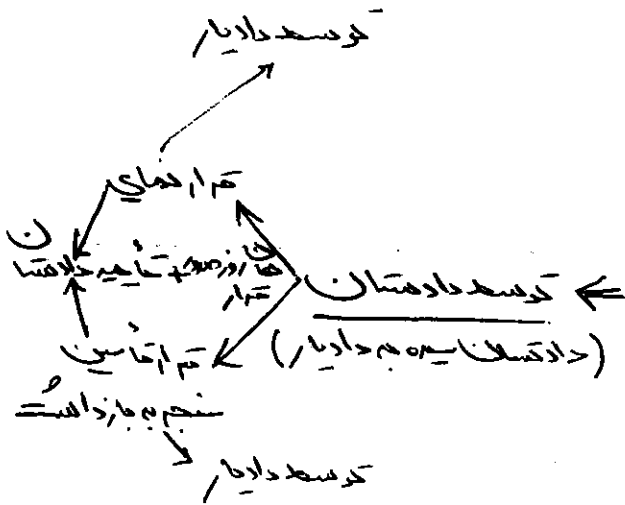 توسط دادیار
قرار نهایی
همان روز صدور + تأیید دادستان
قرار
⇐ توسط دادستان
(دادستان سپرده به دادیار)
قرار تأمین
منجر به بازداشت
توسط دادیار